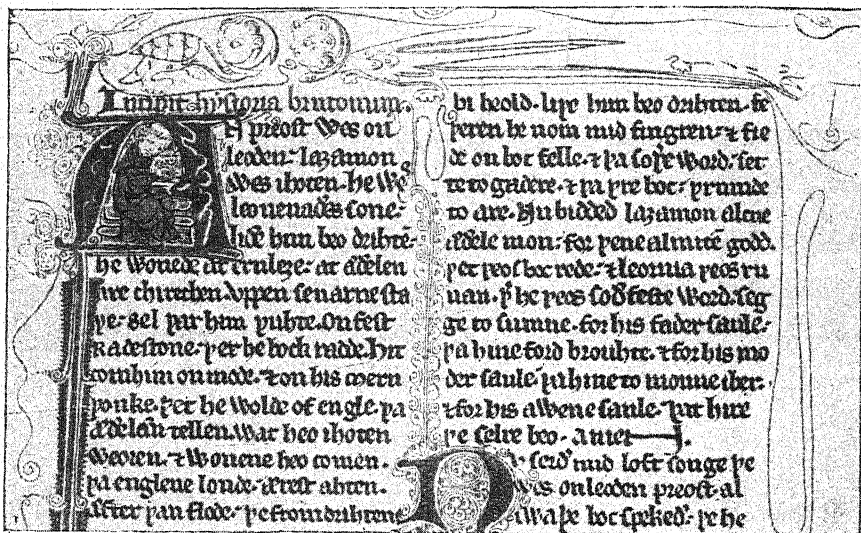 Incipit hystoria brutonum.
AN preost wes on
leoden. laȝamon
wes ihoten. he wes
leouenaðes sone.
liðe him beo drihtē.
he wonede at ernleȝe. at æðelen
are chirechen. vppen seuarne sta
þe. sel þar him þuhte. on fest
Radestone. þer he bock radde. Hit
com him on mode. ⁊ on his mern
þonke. þet he wolde of engle. þa
æðelæn tellen. wat heo ihoten
weoren. ⁊ wonene heo comen.
þa englene londe. ærest ahten.
æfter þan flode. þe from drihtene
bi heold. liþe him beo drihten. fe
þeren he nom mid fingren. ⁊ fie
de on boc felle. ⁊ þa soþe word. set
te to gadere. ⁊ þa þre boc. þrumde
to are. Nu bidded laȝamon alcne
æðele mon. for þene almitē godd.
þet þeos boc rede. ⁊ leornia þeos ru
nan. þ̄ he þeos soðfeste word. seg
ge to sumne. for his fader saule.
þa hine ford brouhte. ⁊ for his mo
der saule. þa hine to monne iber.
⁊ for his awene saule. þat hire
þe selre beo. amen.
Nv seið mid loft songe þe
wes on leoden preost. al
swa þe boc spekeð. þe he